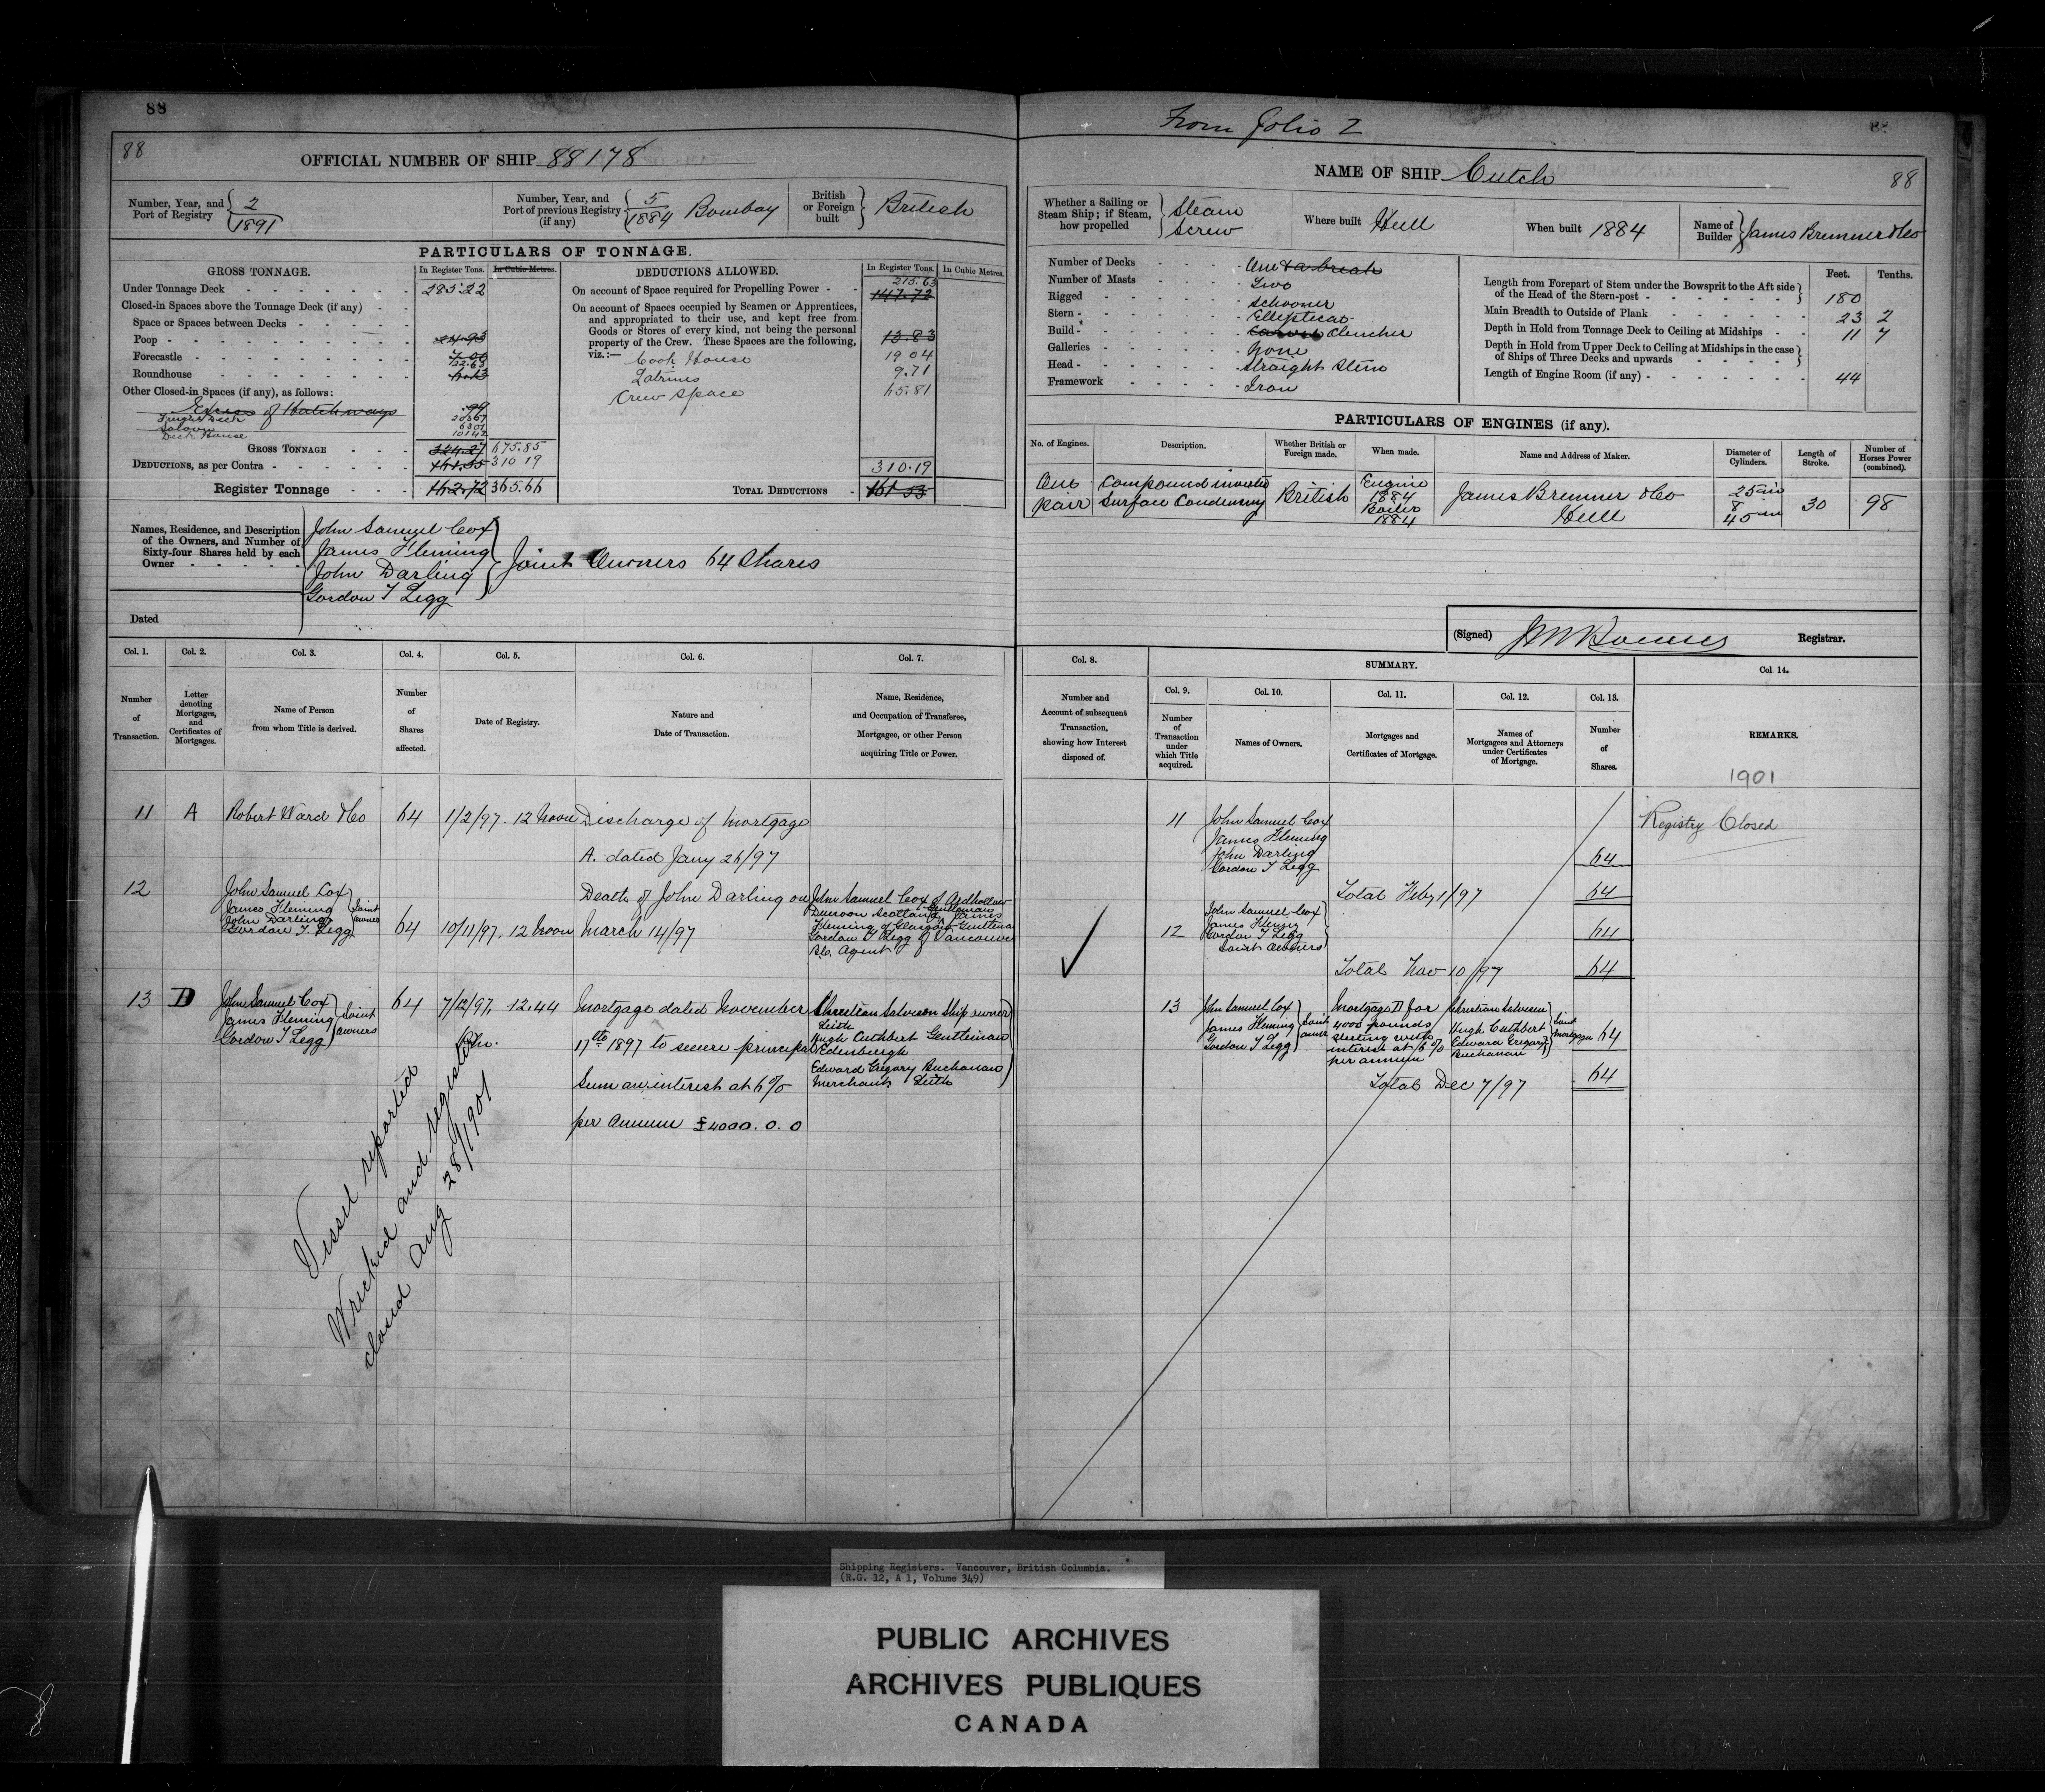 88
88
OFFICIAL NUMBER OF SHIP 88178
Number, Year, and Port of Registry } 2/1891
Number, Year, and Port of previous Registry (if any) } 5/1884 Bombay
British or Foreign built } British
PARTICULARS OF TONNAGE.
GROSS TONNAGE.
In Register Tons.
In Cubic Metres.
Under Tonnage Deck 285.22
Closed-in Spaces above the Tonnage Deck (if any)
Space or Spaces between Decks
Poop 24.93
Forecastle 7.00
122.63
Roundhouse 6.13
Other Closed-in Spaces (if any), as follows:
Excess of Hatchways .99
Saloon
Deck House
GROSS TONNAGE 324.27 675.85
DEDUCTIONS, as per Contra 161.55 310 19
Register Tonnage 162.72 365.66
DEDUCTIONS ALLOWED.
In Register Tons.
In Cubic Metres.
215.63
On account of Space required for Propelling Power 147.72
On account of Spaces occupied by Seamen or Apprentices,
and appropriated to their use, and kept free from
Goods or Stores of every kind, not being the personal
property of the Crew. These Spaces are the following, 13.83
viz.:—
Cook House 19 04
Latrines 9.71
Crew Space 65.81
310.19
TOTAL DEDUCTIONS 161 55
Names, Residence, and Description
of the Owners, and Number of
Sixty-four Shares held by each
Owner
John Samuel Cox
James Fleming
John Darling
Gordon T Legg
Joint Owners 64 Shares
Dated
Col. 1.
Number of Transaction.
Col. 2.
Letter denoting Mortgages, and Certificates of Mortgages.
Col. 3.
Name of Person from whom Title is derived.
Col. 4.
Number of Shares affected.
Col. 5.
Date of Registry.
Col. 6.
Nature and Date of Transaction.
Col. 7.
Name, Residence, and Occupation of Transferee, Mortgagee, or other Person acquiring Title or Power.
11 A Robert Ward & Co 64 1/2/97. 12 Noon Discharge of Mortgage
A. dated Jany 26/97
12
John Samuel Cox
James Fleming
John Darling
Gordon T. Legg
Joint owners
64 10/11/97. 12 Noon
Death of John Darling on
March 14/97
John Samuel Cox of Ardhallow
Dunoon Scotland Gentleman James
Fleming of Glasgow Gentleman
Gordon T Legg of Vancouver
B.C. Agent
13 D
John Samuel Cox
James Fleming
Gordon T Legg
Joint owners
64 7/12/97. 12.44
P.m.
Mortgage dated November
17th 1897 to secure principal
Sum and interest at 6%
per Annum £4000. 0. 0
Christian Salvesen Ship owner
Leith
Hugh Cuthbert Gentleman
Edenburgh
Edward Gregory Buchanan
Merchant Leith
Vessel reported
Wrecked and register
closed Aug 28/1901
From folio 2
NAME OF SHIP Cutch
88
Whether a Sailing or Steam Ship; if Steam, how propelled } Steam Screw
Where built Hull
When built 1884
Name of Builder } James Bremner & Co
Number of Decks One & a break
Number of Masts Two
Rigged Schooner
Stern Elliptical
Build Carvel Clencher
Galleries None
Head Straight Stem
Framework Iron
Feet. Tenths.
Length from Forepart of Stem under the Bowsprit to the Aft side
of the Head of the Stern-post 180
Main Breadth to Outside of Plank 23 2
Depth in Hold from Tonnage Deck to Ceiling at Midships 11 7
Depth in Hold from Upper Deck to Ceiling at Midships in the case
of Ships of Three Decks and upwards
Length of Engine Room (if any) 44
PARTICULARS OF ENGINES (if any).
No. of Engines.
Description.
Whether British or Foreign made.
When made.
Name and Address of Maker.
Diameter of Cylinders.
Length of Stroke.
Number of Horses Power (combined).
One Pair
Compound inverted Surface Condensing
British
Engine 1884
Boiler 1884
James Bremner & Co
Hull
25 in
&
45 in
30
98
(Signed)
Registrar.
Col. 8.
Number and Account of subsequent Transaction, showing how Interest disposed of.
SUMMARY.
Col. 9.
Number of Transaction under which Title acquired.
Col. 10.
Names of Owners.
Col. 11.
Mortgages and Certificates of Mortgage.
Col. 12.
Names of Mortgagees and Attorneys under Certificates of Mortgage.
Col. 13.
Number of Shares.
Col. 14.
REMARKS.
1901
Registry Closed
11
John Samuel Cox
James Fleming
John Darling
Gordon T Legg
64
Total Feby 1/97 64
12
John Samuel Cox
James Fleming
Gordon T Legg
Joint Owners
64
Total Nov 10/97 64
13
John Samuel Cox
James Fleming
Gordon T Legg
Joint owners
Mortgage D for
4000 pounds
Sterling with
interest at 6%
per annum
Christian Salvesen
Hugh Cuthbert
Edward Gregory
Buchanan
Joint Mortgagees
64
Total Dec 7/97 64
Shipping Registers. Vancouver, British Columbia.
(R.G. 12, A 1, Volume 349)
PUBLIC ARCHIVES
ARCHIVES PUBLIQUES
CANADA